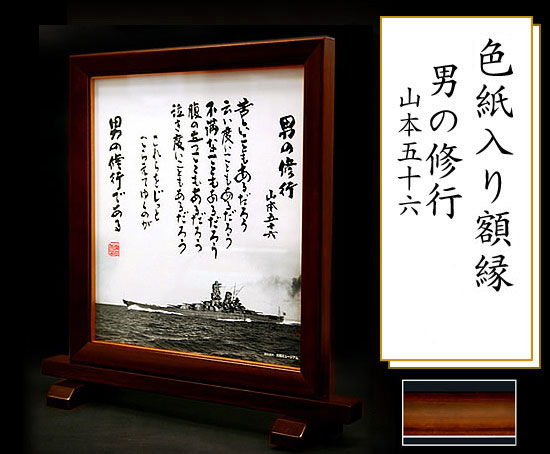 色紙入り額縁
男の修行
山本五十六
男の修行
山本五十六
苦しいこともあるだろう
云い度いこともあるだろう
不満なこともあるだろう
腹の立つこともあるだろう
泣き度いこともあるだろう
これらをじっと
こらえてゆくのが
男の修行である